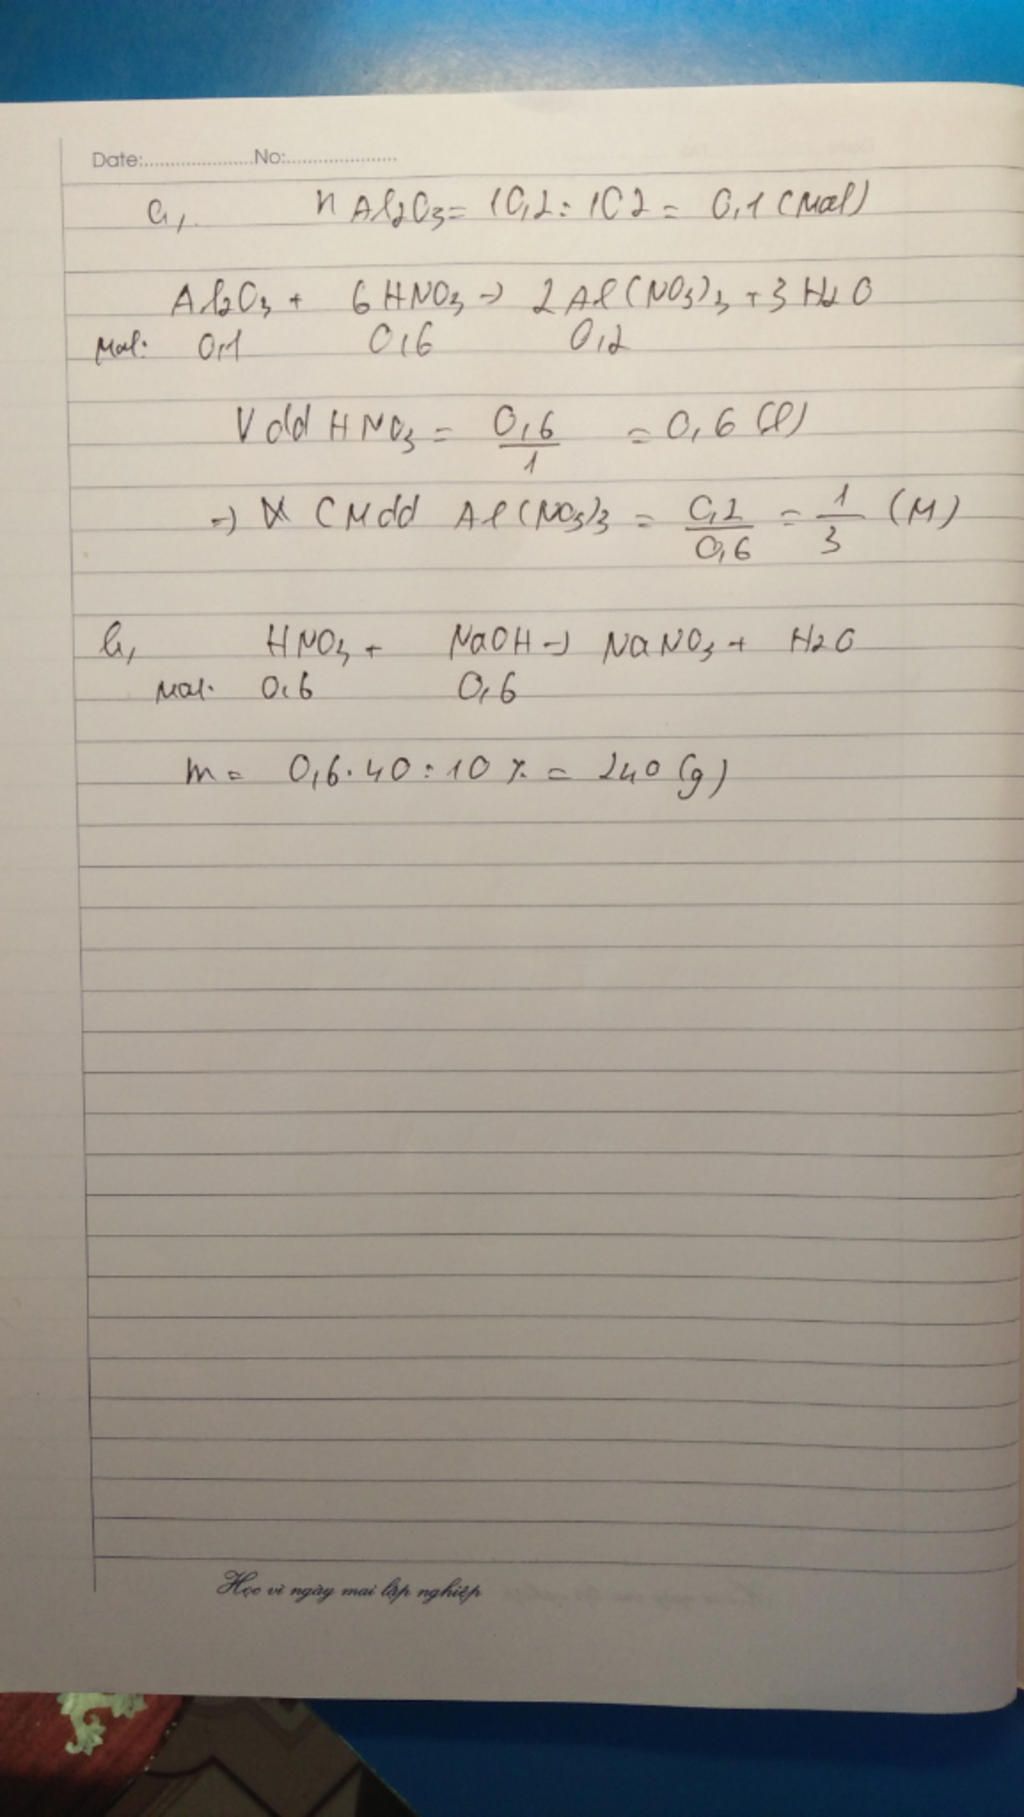 Date:....................No:....................
a, n Al2O3 = 10,2 : 102 = 0,1 (mol)
Al2O3 + 6HNO3 → 2Al(NO3)3 + 3H2O
mol: 0,1 0,6 0,2
Vdd HNO3 = 0,6/1 = 0,6 (l)
=> CMdd Al(NO3)3 = 0,2/0,6 = 1/3 (M)
b, HNO3 + NaOH → NaNO3 + H2O
mol: 0,6 0,6
m = 0,6.40 : 10% = 240 (g)
Học vì ngày mai lập nghiệp